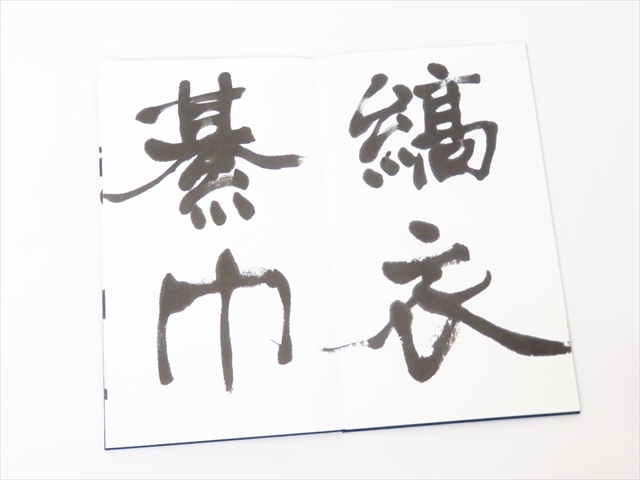 縞衣
綦巾